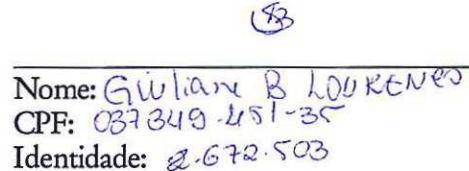 Nome: Giuliane B LOURENÇO
CPF: 037349.451-35
Identidade: 2.672.503